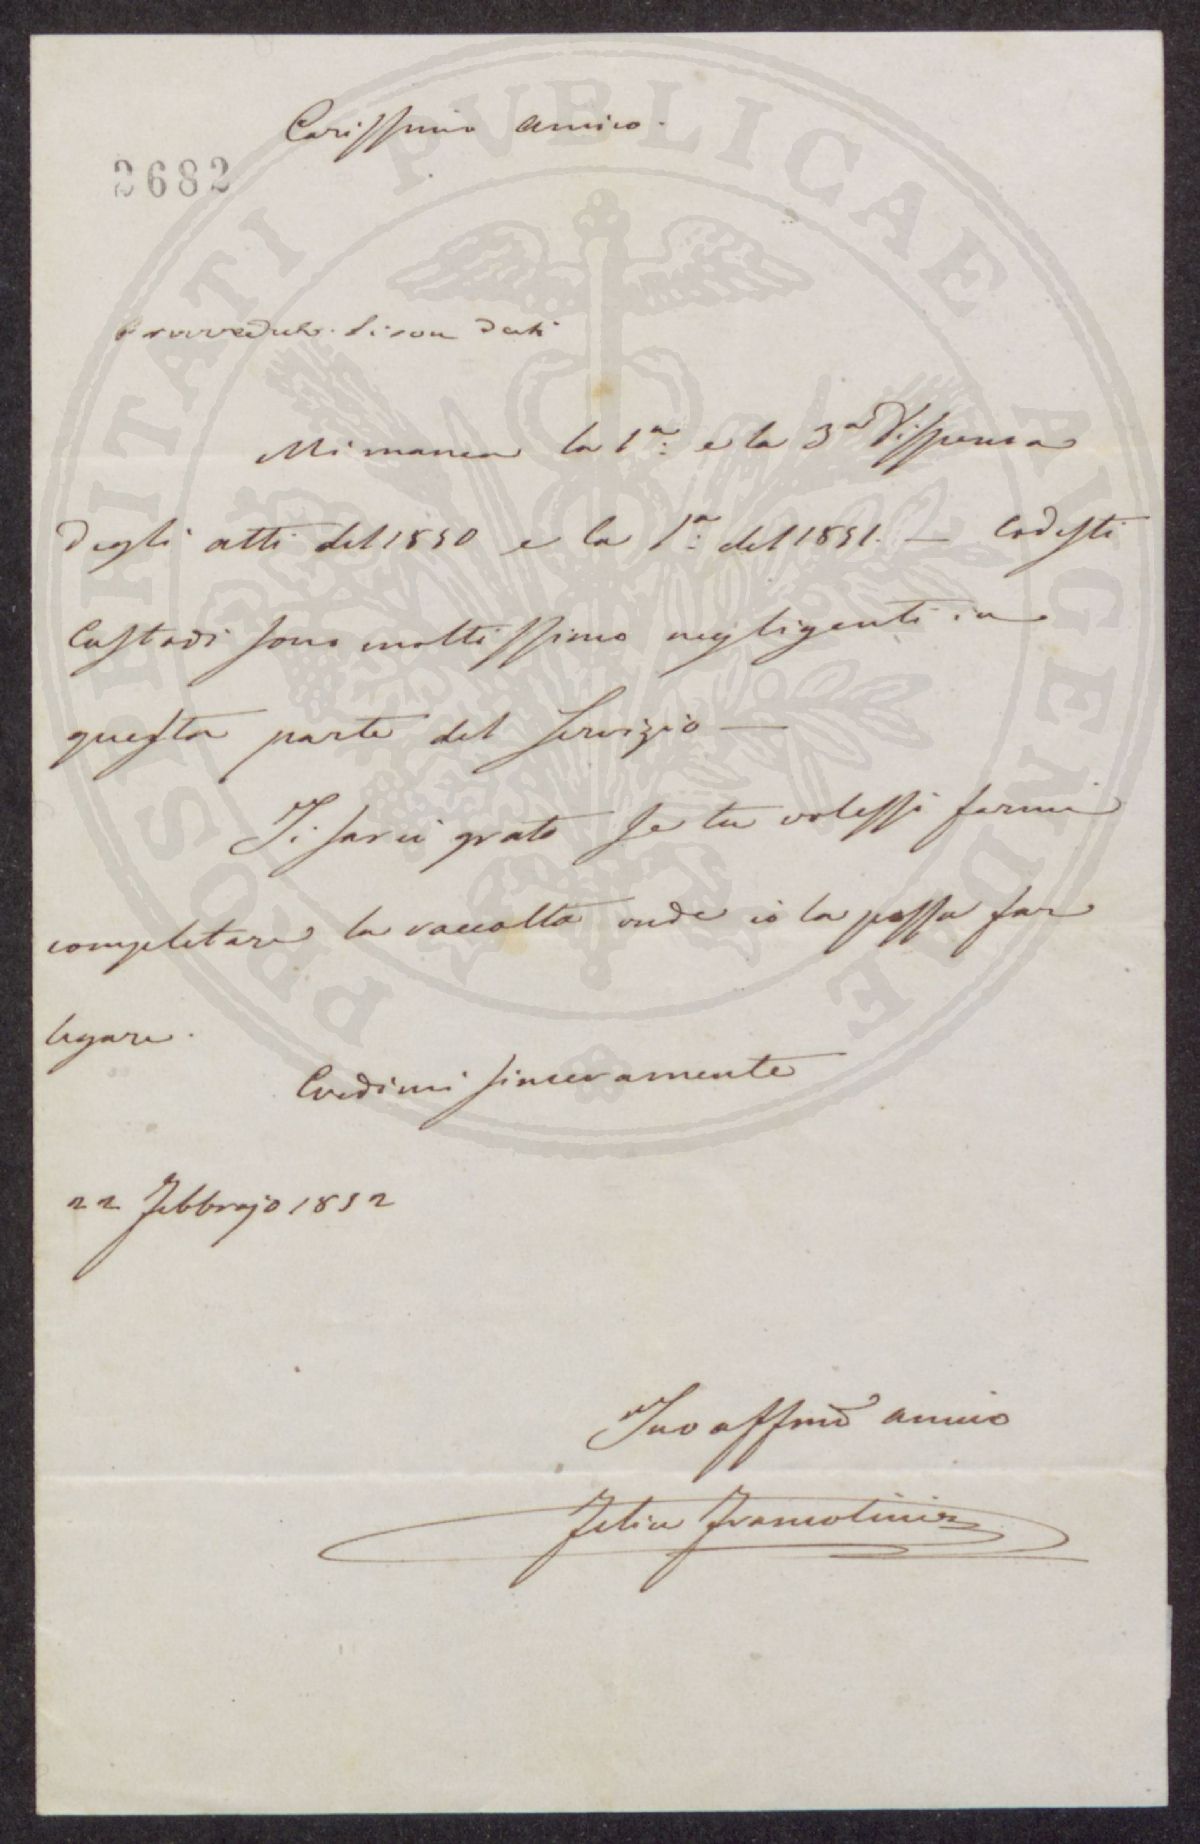 Carissimo amico.
2682
Provveduto. Si son dati
Mi manca la 1.a e la 3.a dispensa
degli atti del 1850 e la 1.a del 1851. — Codesti
Custodi sono moltissimo negligenti in
questa parte del servizio —
Ti sarei grato se tu volessi farmi
completare la raccolta onde io la possa far
legare.
Credimi sinceramente
22 Febbrajo 1852
Tuo affmo amico
Felice Francolini
PROSPERITATI PVBLICAE AVGENDAE